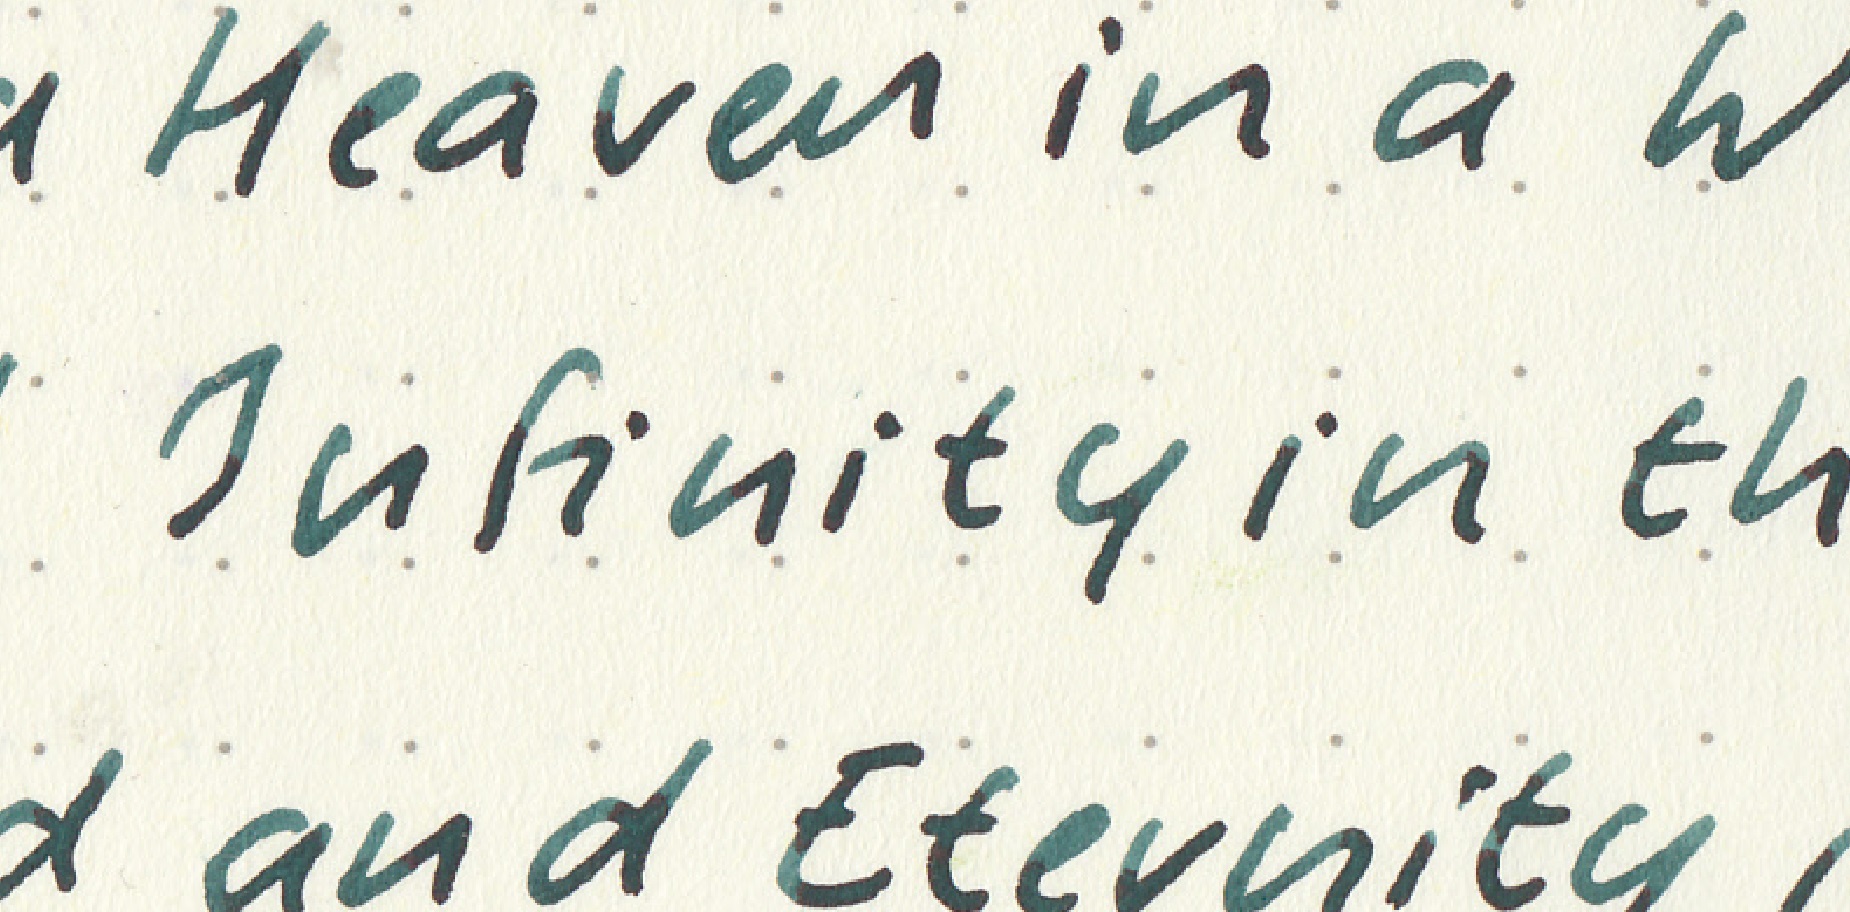 a Heaven in a W
Infinity in th
d and Eternity